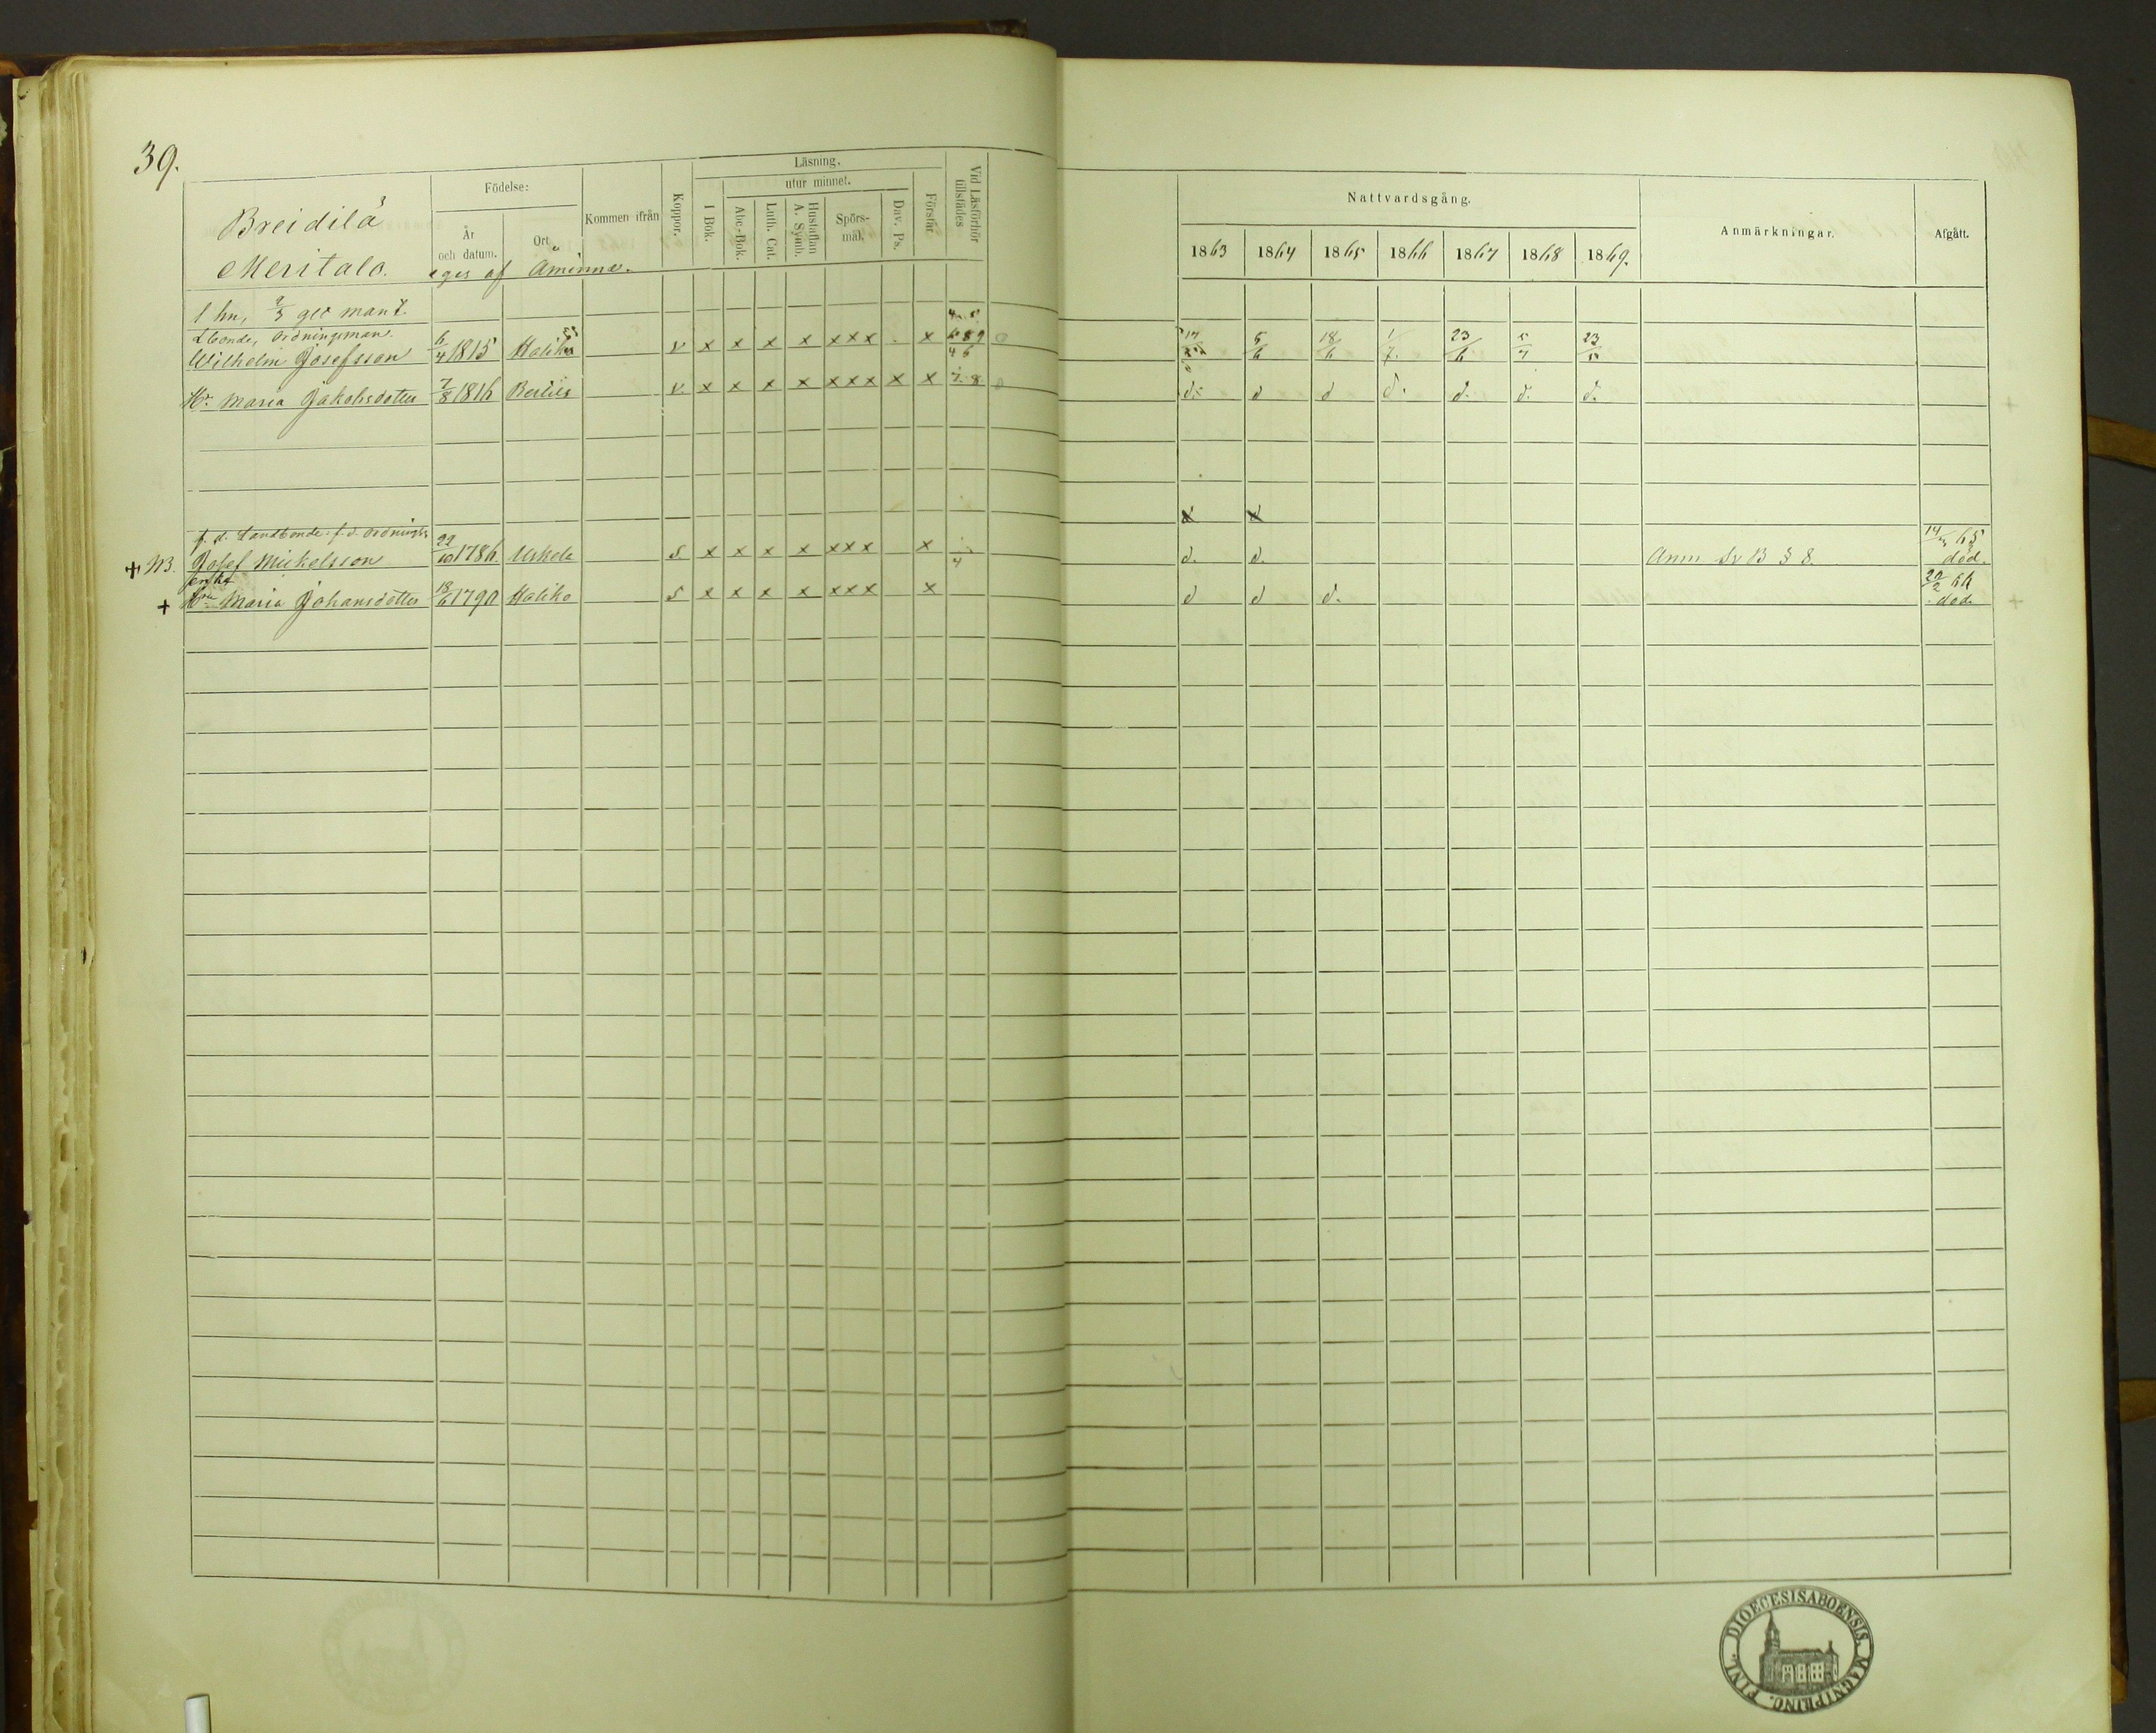 39.
Breidilä
Meritalo. eges af Åminne.
Födelse:
År och datum.
Ort
Kommen ifrån
Koppor.
Läsning.
I Bok.
utur minnet.
Abc-Bok.
Luth. Cat.
Hustaflan A. Symb.
Spörsmål.
Dav. Ps.
Förstår
Vid Läsförhör tillstädes
Nattvardsgång.
1863 1864 1865 1866 1867 1868 1869.
Anmärkningar.
Afgått.
1 hn, 2/3 mant.
Lbonde, Ordningsman
Wilhelm Josefsson 6/4 1815 Haliko v x x x x xxx . x 17 5/6 18/6 1/7. 23/6 5/7 23/5
Hu. Maria Jakobsdotter 7/8 1816 v. x x x x xxx x x 7. 8. d. d d d. d. d. d.
x x
f. d. Landbonde. f. d. Ordningsm
NB. Josef Mickelsson 22/10 1786. Uskela s x x x x xxx x d. d. Anm B § 8. 14/5 65 död.
enka
Hu Maria Johansdotter 18/6 1790 Haliko s x x x x xxx x d d d. 22/2 66 död.
DIOECESIS ABOENSIS. MAGNI PRINC. FINL.